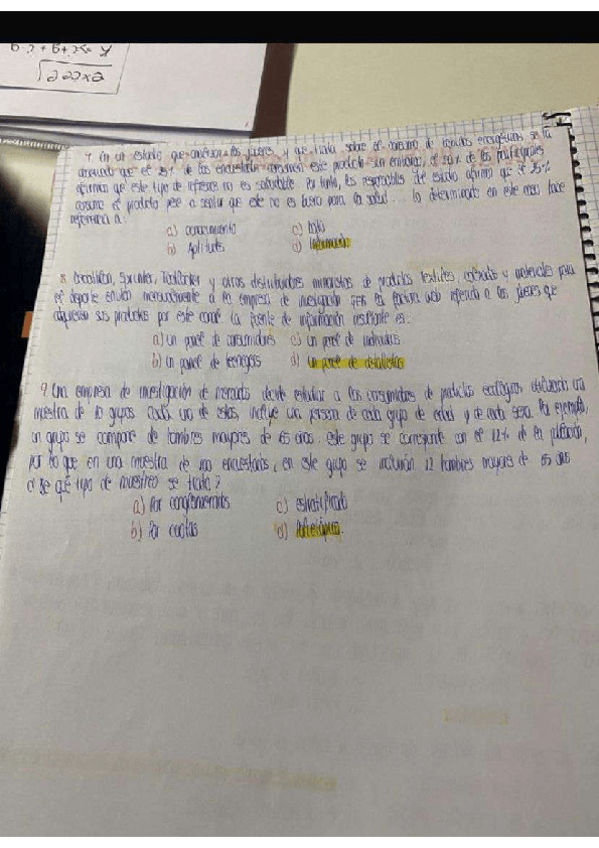 7 En un estudio que analizan a los jóvenes y que trata sobre el consumo de bebidas energéticas se ha
que el 35% de los encuestados consumen este producto sin embargo, el 80% de los participantes
afirman que este tipo de refrescos no es saludable. Por tanto, los responsables del estudio afirman que el 35%
consume el producto pese a señalar que este no es bueno para la salud. Lo determinado en este caso hace
referencia a:
a) conocimiento c)
b) Aptitudes d)
8. Decathlon, Sprinter, y otros distribuidores minoristas de productos textiles, calzado y materiales para
el deporte envían mensualmente a la empresa de investigación GFK la factura web referida a los jóvenes que
adquieren sus productos por este canal. La fuente de información resultante es:
a) Un panel de consumidores c) un panel de individuos
b) Un panel de teenagers d) Un panel de detallistas
9 Una empresa de investigación de mercado decide estudiar a los consumidores de productos ecológicos utilizando una
muestra de 10 grupos. Cada uno de estos, incluye una persona de cada grupo de edad y de cada sexo. Por ejemplo,
un grupo se compone de hombres mayores de 65 años. Este grupo se corresponde con el 12% de la población,
por lo que en una muestra de 100 encuestados, en este grupo se incluirán 12 hombres mayores de 65 años
d se qué tipo de muestreo se trata?
a) Por conglomerados c) estratificado
b) Por cuotas d)